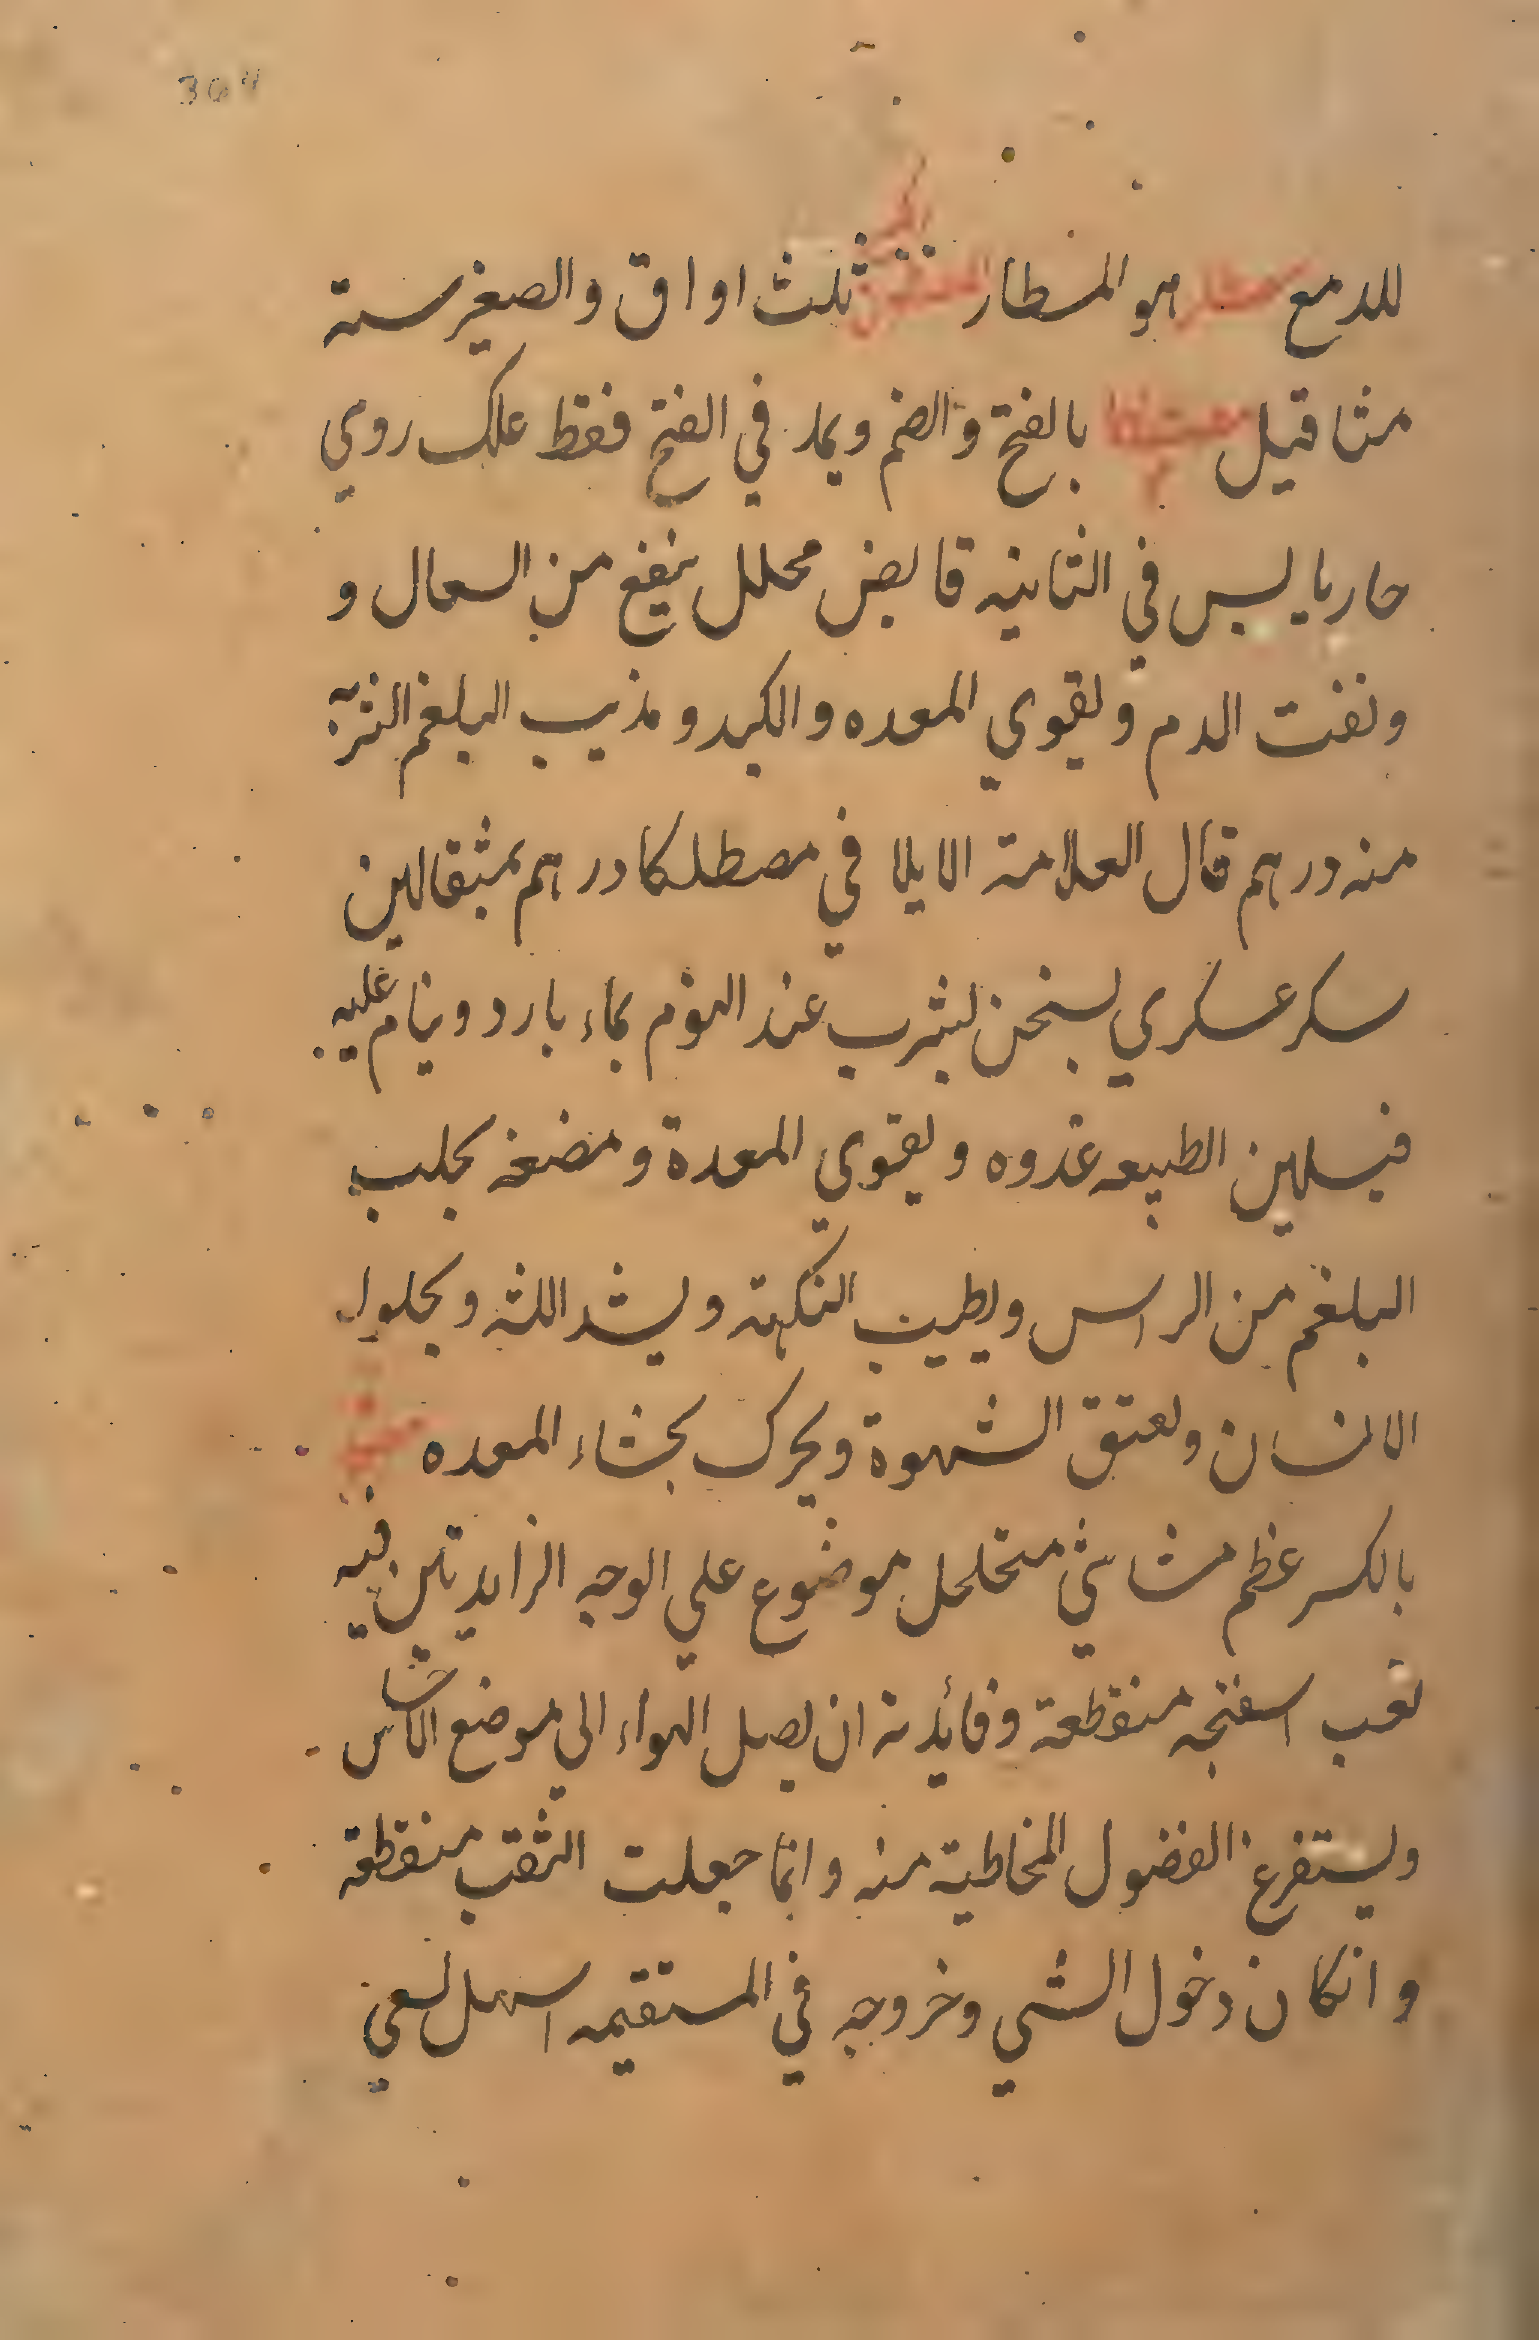 للدمع مسطار هو المسطار ثلث اواق والصغير ستة
مثاقيل مصطكا بالفتح والضم ويمد في الفتح فقط علك رومي
حار يابس في الثانيه قابض محلل ينفع من السعال و
ونفث الدم ويقوي المعده والكبد ومذيب البلغم الشربة
منه درهم قال العلامة الايلا في مصطكا درهم بمثقالين
سكر عسكري يسخن يشرب عند النوم بماء بارد وينام عليه
فيسلين الطبيعه غدوه ويقوي المعدة ومضغه يجلب
البلغم من الراس ويطيب النكهة ويشد اللثه ويحلول
الانسان ويعتق الشهوة ويحرك بجشاء المعده
بالكسر عظم مشاشي متخلخل موضوع علي الوجه الزايدتين فيه
ثقب اسفنجيه منقطعة وفائدته ان يصل الهواء الي موضع الاحساس
ويستفرغ الفضول المخاطية منه وانما جعلت الثقب منقطعة
وانكان دخول الشي وخروجه في المستقيمه اسهل لعي